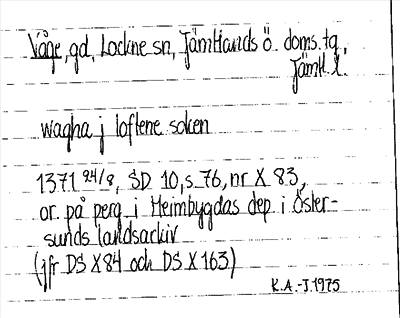 Våge, gd, Lockne sn, Jämtlands ö. doms. tg,
Jämtl. l.
wagha j loftene soken
1371 24/8, SD 10, s 76, nr X 83,
or. på perg. i Heimbygdas dep i Öster-
sunds landsarkiv
(jfr DS X 84 och DS X 163)
K.A.-J. 1975